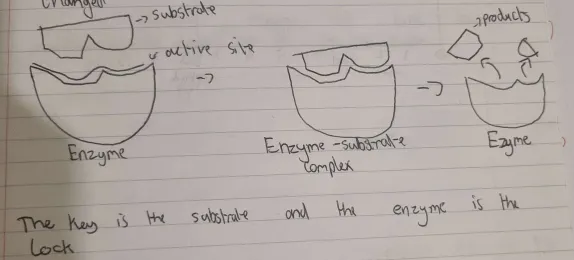 changed.
→substrate
active site
→products
Enzyme
Enzyme-substrate
complex
Ezyme
The key is the substrate and the enzyme is the
Lock